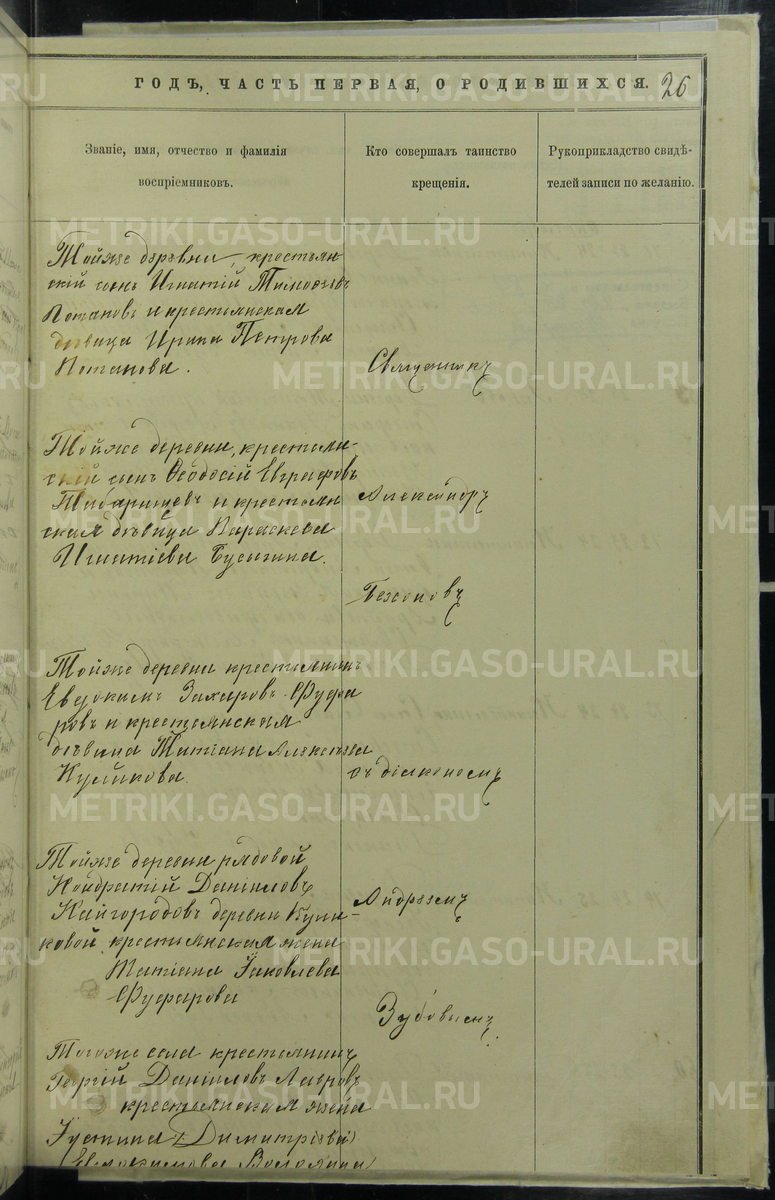 ГОДЪ, ЧАСТЬ ПЕРВАЯ, О РОДИВШИХСЯ. 26
Званіе, имя, отчество и фамилія
воспріемниковъ.
Кто совершалъ таинство
крещенія.
Рукоприкладство свидѣ-
телей записи по желанію.
Тойже деревни, крестьян-
скій сынъ Игнатій Тимофеевъ
Потаповъ и крестьянская
дѣвица Ирина Петрова
Потапова.
Тойже деревни, крестьян-
скій сынъ Ѳеодосій Евграфовъ
и крестьян
ская дѣвица Параскева
Игнатіева Бусыгина.
Тойже деревни крестьянинъ
Евдокимъ Захаровъ Фуфа
ровъ и крестьянская
дѣвица Татіана Алексѣева
Куликова.
Тойже деревни рядовой
Кондратій Даніиловъ
Кайгородовъ деревни Кули-
ковой крестьянская жена
Татіана Іаковлева
Фуфарова
Тогоже села крестьянинъ
Георгій Даніиловъ Лавровъ
крестьянская жена
Іустина Димитріева
Священникъ
Александръ
съ діакономъ
Андреемъ
METRIKI.GASO-URAL.RU